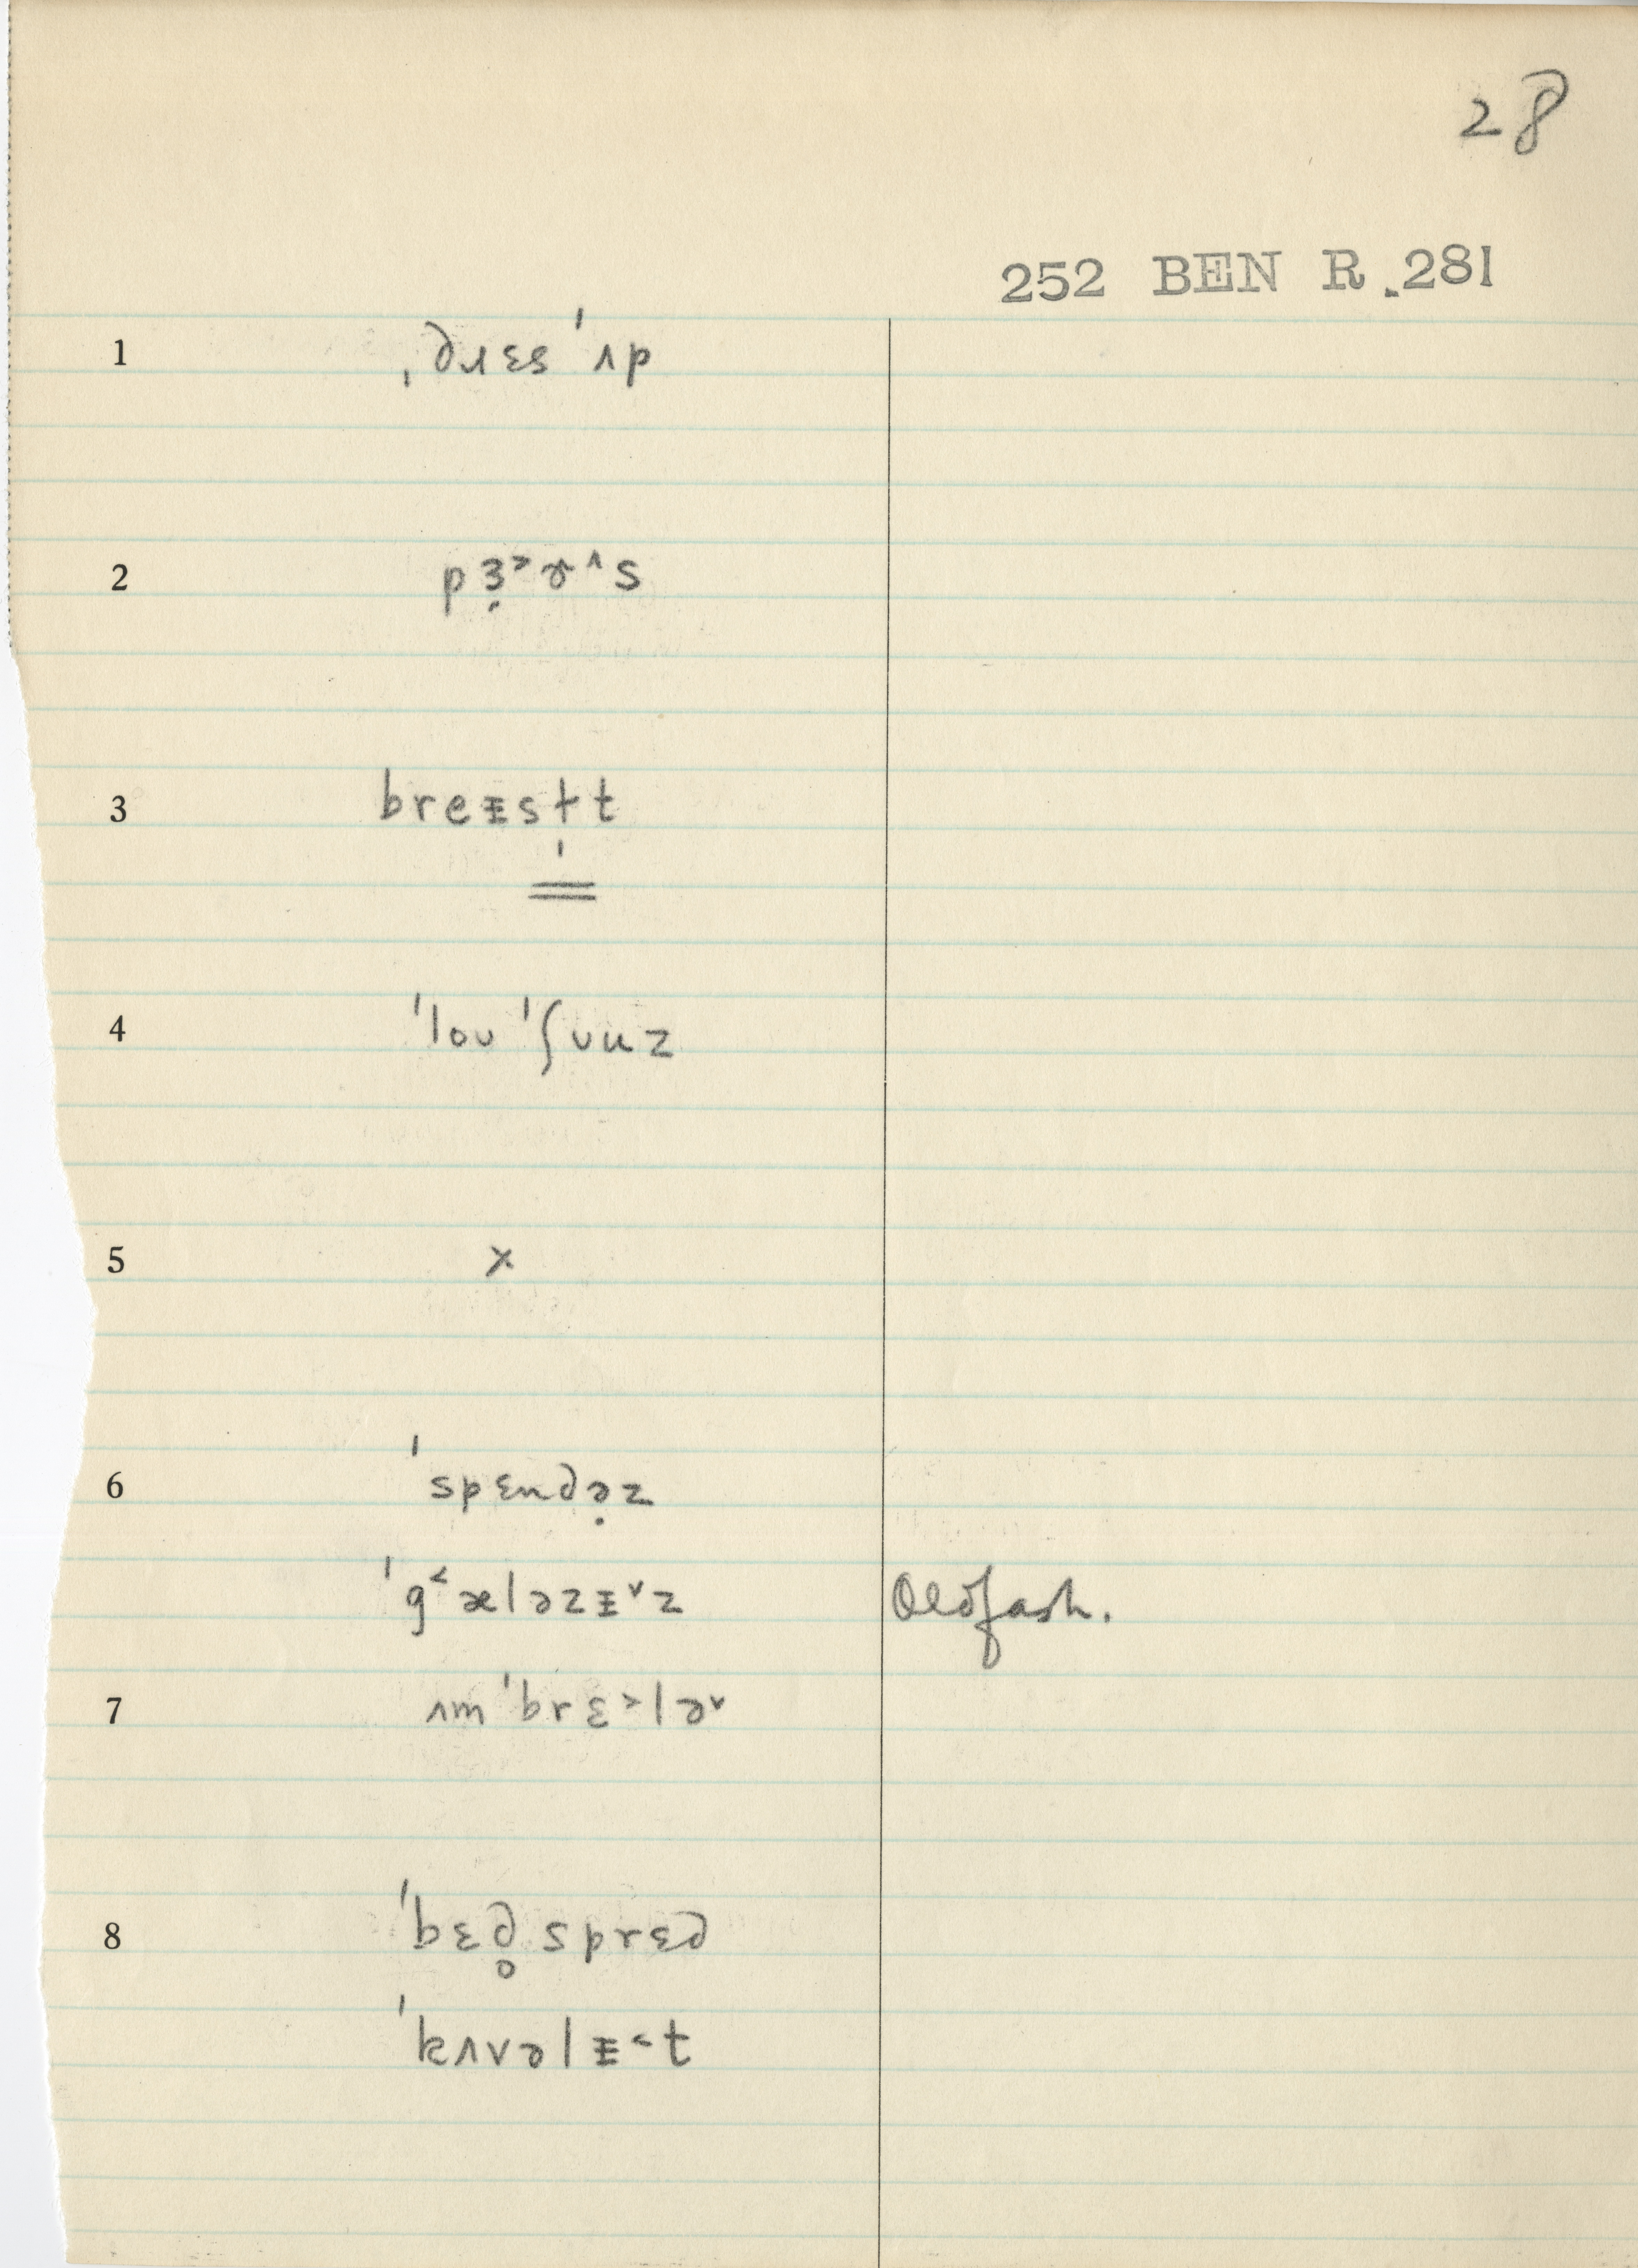 28
252 BEN R. 281
1 ˌdɹɛs ˈʌp
2 pɜ̣˃ɚ˄s
3 breᵻstt
4 ˈloʊ ˈʃuuz
5 x
6 ˈspɛndə̣z
ˈg˂æləzᵻ˅z Oldfash.
7 ʌmˈbrɛ˃lə˅
8 ˈbɛd̥sprɛd
ˈkʌvəlᵻ˂t